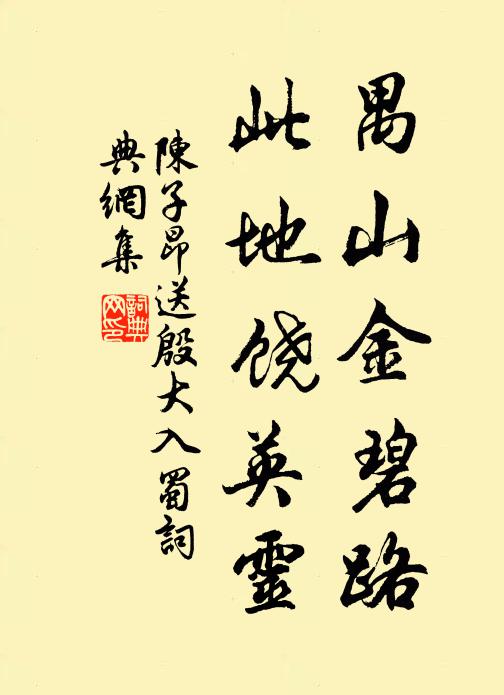 禺山金碧路
此地饶英靈
陳子昂送殷大入蜀詞
典網集
詞典网印